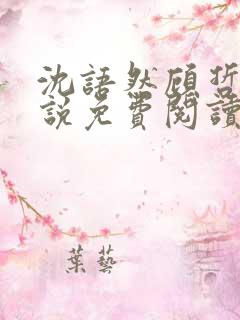 沈語然顧
說免費閱讀
葉藝